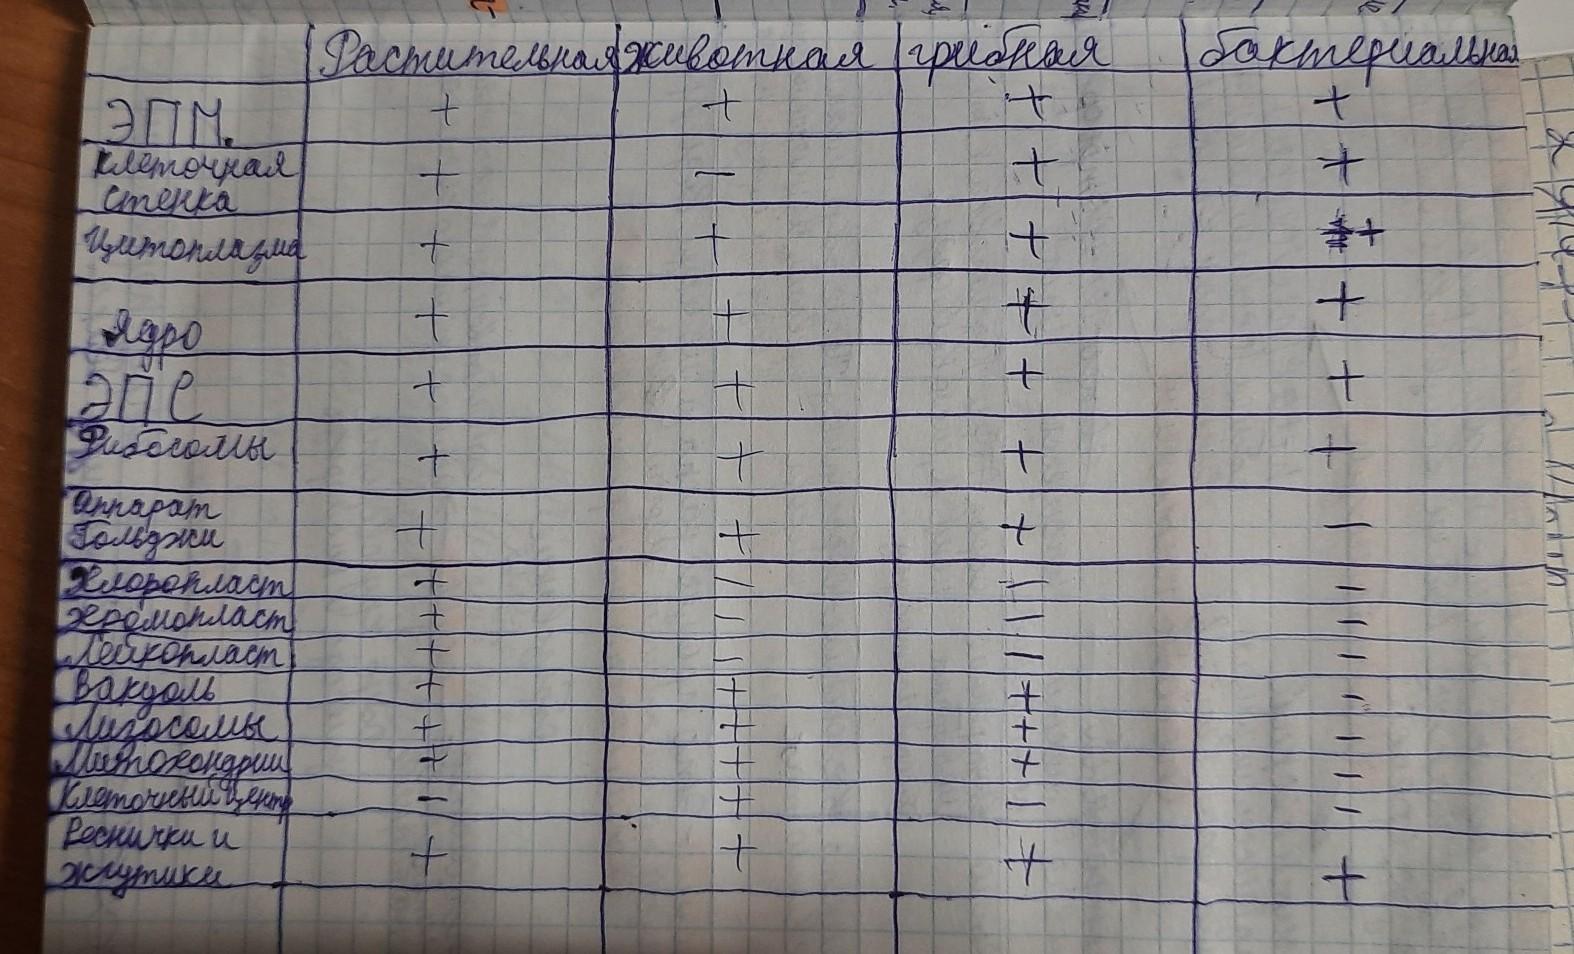 Растительная животная грибная бактериальная
ЭПМ. + + + +
Клеточная
стенка + — + +
Цитоплазма + + + +
Ядро + + + +
ЭПС + + + +
Рибосомы + + + +
Аппарат
Гольджи + + + —
Хлоропласт + — — —
Хромопласт + — — —
Лейкопласт + — — —
Вакуоль + + + —
Лизосомы + + + —
Митохондрии + + + —
Клеточный центр — + — —
Реснички и
жгутики + + + +